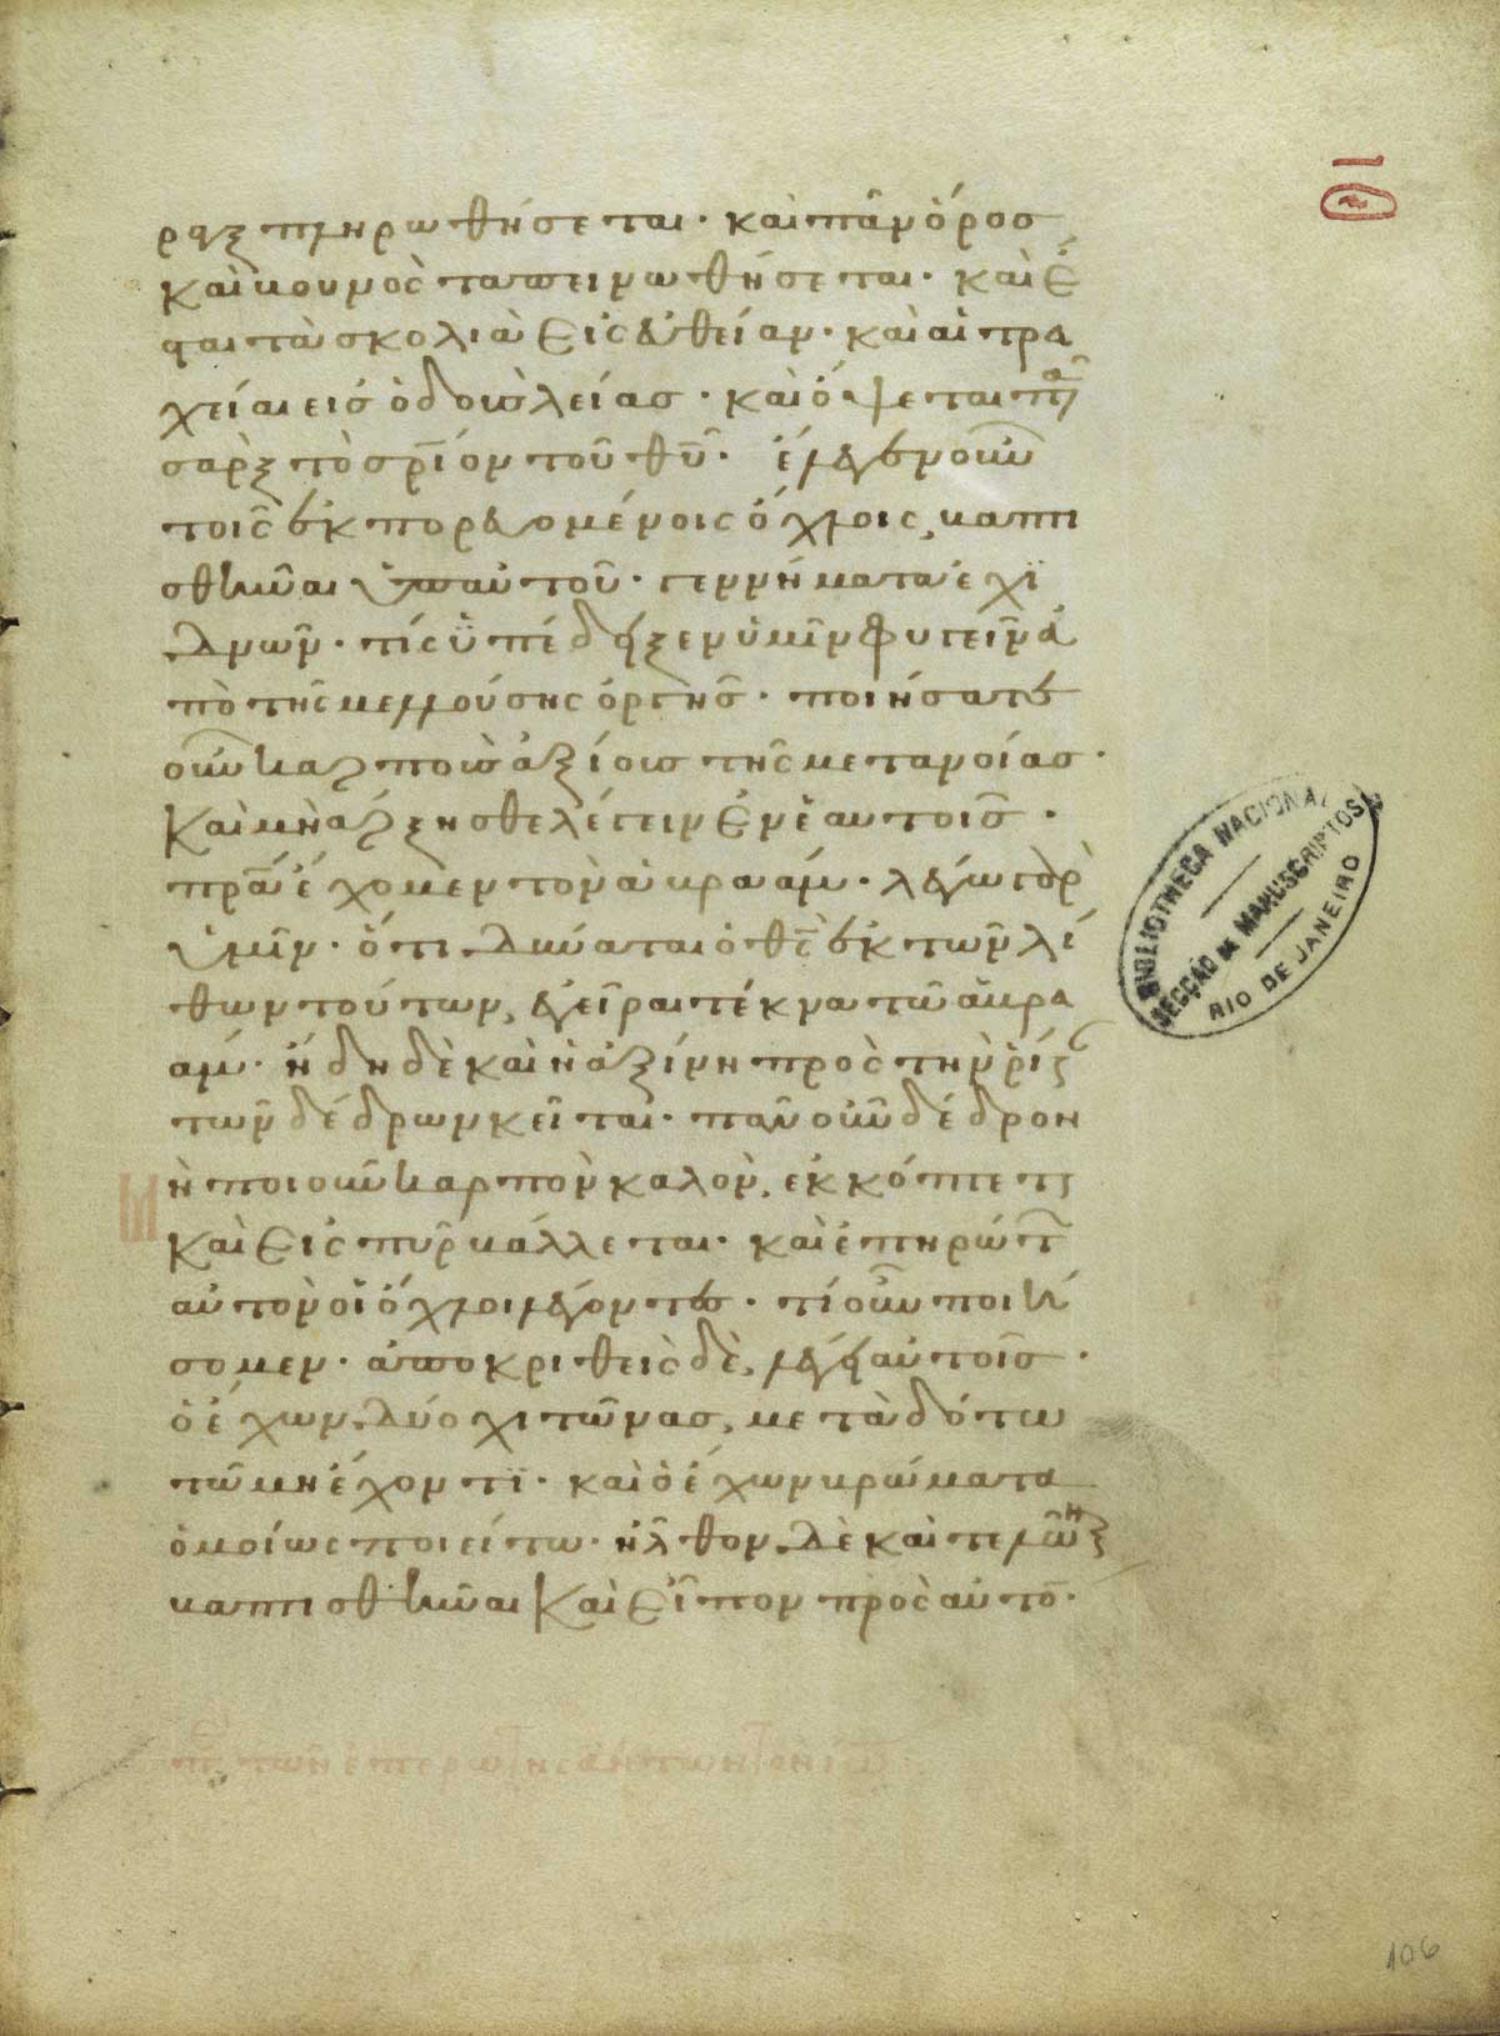 ραξ πληρωθήσεται· καὶ πᾶν ὄροσ
καὶ βουνὸς ταπεινωθήσεται· καὶ ἔ
σται τὰ σκολιὰ εἰς εὐθείαν· καὶ αἱ τρα
χείαι εἰσ ὁδοὺσ λείασ· καὶ ὄψεται πᾶ
σαρξ τὸ σρῑον τοῦ θῡ· ἔλεγεν οὖν
τοῖς ἐκπορευομένοις ὄχλοις, βαπτι
σθῆναι ὑπ αὐτοῦ· γεννήματα ἐχϊ
δνῶν· τίς ὑπέδειξεν ὑμῖν φυγεῖν ἀ
πὸ τῆς μελλούσης ὀργῆσ· ποιήσατε
οὖν καρποὺσ ἀξίουσ τῆς μετανοίασ·
καὶ μὴ ἄρξησθε λέγειν ἐν ἑαυτοῖσ·
πρᾱ ἔχομεν τὸν ἀβραάμ· λέγω γὰρ
ὑμῖν· ὅτι δύναται ὁ θς̄ ἐκ τῶν λί
θων τούτων, ἐγεῖραι τέκνα τῶ ἀβρα
άμ· ἤδη δὲ καὶ ἡ ἀξίνη πρὸς τὴν ρίζ
τῶν δένδρων κεῖται· πᾶν οὖν δένδρον
μὴ ποιοῦν καρπὸν καλὸν, ἐκκόπτετ
καὶ εἰς πῦρ βάλλεται· καὶ ἐπηρώτ
αὐτὸν οἱ ὄχλοι λέγοντεσ· τί οὖν ποιή
σομεν· ἀποκριθεὶς δὲ, λέγει αὐτοῖσ·
ὁ ἔχων δύο χιτῶνασ, μεταδότω
τῶ μὴ ἔχοντϊ· καὶ ὁ ἔχων βρώματα
ὁμοίως ποιείτω· ἦλθον δὲ καὶ τελῶν
βαπτισθῆναι καὶ εἶπον πρὸς αὐτο̄·
BIBLIOTHECA NACIONAL
SECÇÃO DE MANUSCRIPTOS
RIO DE JANEIRO
106